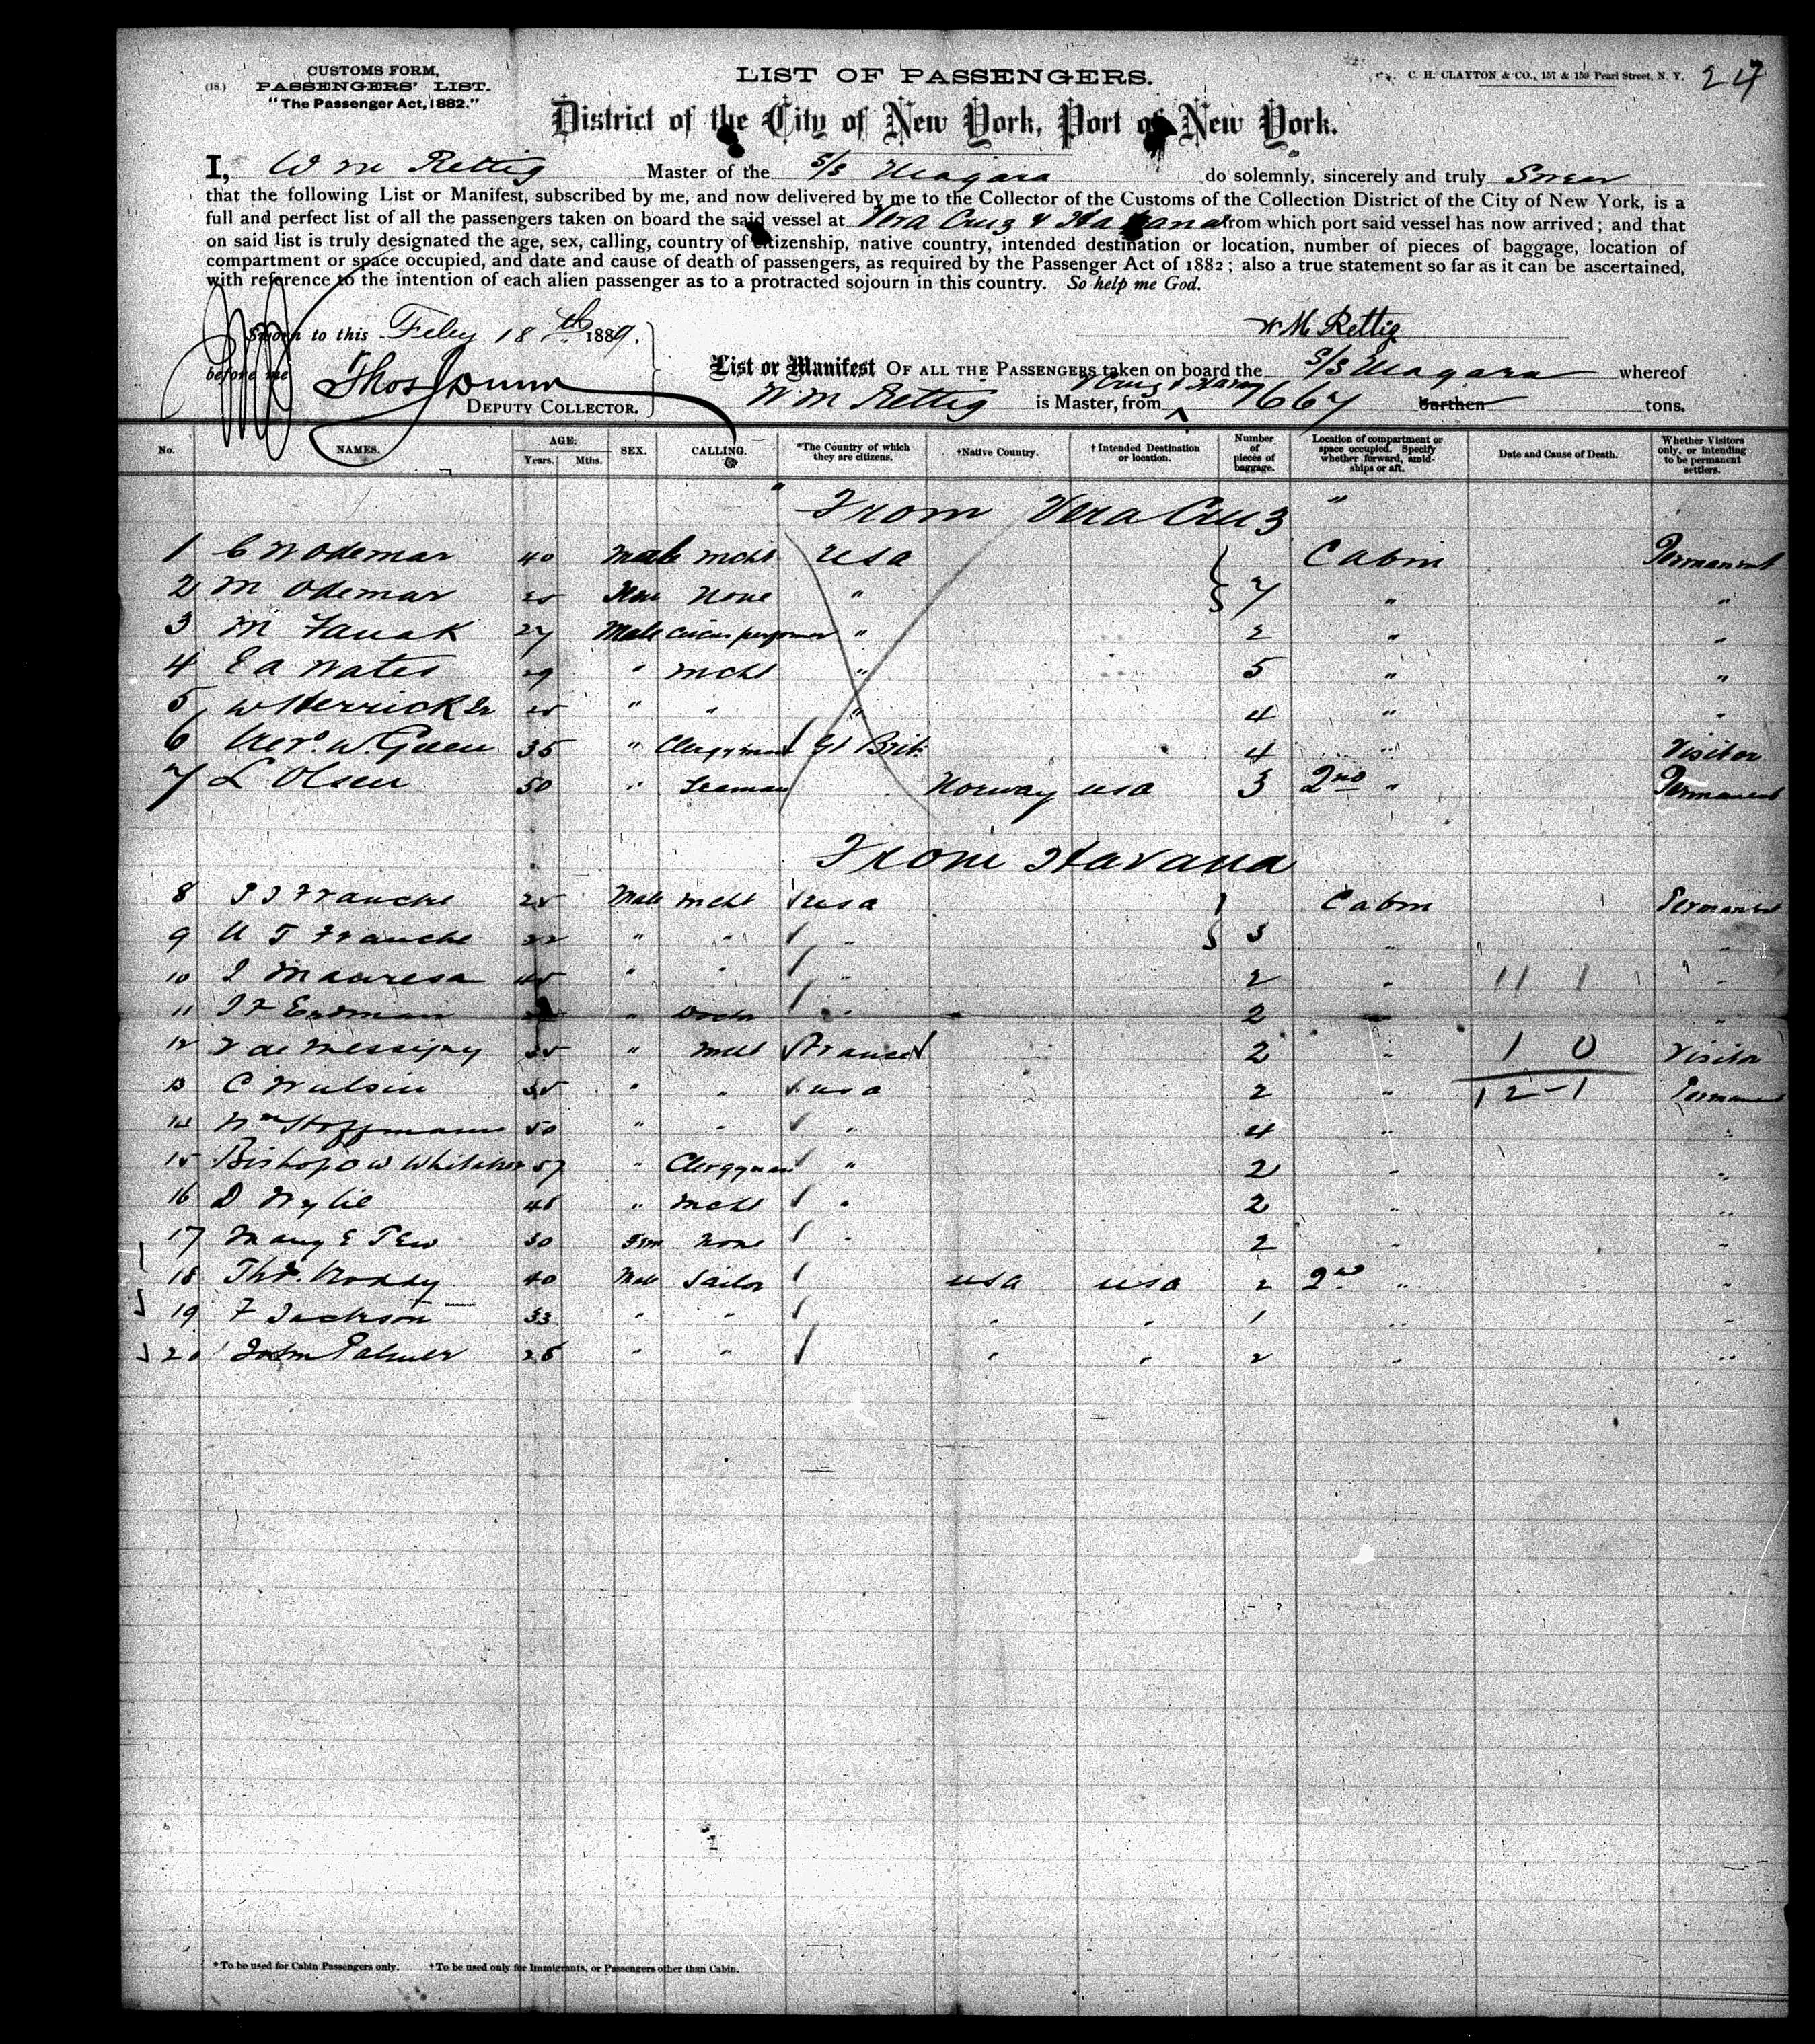 CUSTOMS FORM,
(18.) PASSENGERS' LIST.
"The Passenger Act, 1882."
LIST OF PASSENGERS.
C. H. CLAYTON & CO., 157 & 159 Pearl Street, N. Y. 27
District of the City of New York, Port of New York.
I, W M Rettig Master of the S/S Niagara do solemnly, sincerely and truly Swear
that the following List or Manifest, subscribed by me, and now delivered by me to the Collector of the Customs of the Collection District of the City of New York, is a
full and perfect list of all the passengers taken on board the said vessel at Vera Cruz & Havana from which port said vessel has now arrived; and that
on said list is truly designated the age, sex, calling, country of citizenship, native country, intended destination or location, number of pieces of baggage, location of
compartment or space occupied, and date and cause of death of passengers, as required by the Passenger Act of 1882; also a true statement so far as it can be ascertained,
with reference to the intention of each alien passenger as to a protracted sojourn in this country. So help me God.
Sworn to this Feby 18th 1889.
W M Rettig
before me
Thos Dunn
DEPUTY COLLECTOR.
List or Manifest OF ALL THE PASSENGERS taken on board the S/S Niagara whereof
W M Rettig is Master, from V Cruz & Havana 1667 Burthen tons.
No. NAMES. AGE. Years. Mths. SEX. CALLING. *The Country of which they are citizens. †Native Country. †Intended Destination or location. Number of pieces of baggage. Location of compartment or space occupied. Specify whether forward, amidships or aft. Date and Cause of Death. Whether Visitors only, or intending to be permanent settlers.
From Vera Cruz "
1 Odemar 40 Male Mcht USA Cabin Permanent
2 M Odemar Fem None " 7 " "
3 M 27 Male Circus performer " 2 " "
4 E A Wates 29 " Mcht " 5 " "
5 W Herrick Jr " " " 4 " "
6 Rev. W. Green 35 " Clergyman Gt Brit. 4 " Visitor
7 L Olsen 50 " Seaman Norway USA 3 2nd " Permanent
From Havana
8 Franche 25 Male Mcht USA Cabin Permanent
9 T Franche 22 " " " 3 " "
10 Manresa 45 " " " 2 " 11 1 "
11 Erdman " Doctor " 2 " "
12 de Messigny 35 " Mcht France 2 " 1 0 Visitor
13 C Wulsin 35 " " USA 2 " 12-1 Permanent
14 Wm Hoffmann 50 " " " 4 " "
15 Bishop O W Whitaker 57 " Clergyman " 2 " "
16 D Wylie 48 " Mcht " 2 " "
17 Mary E Tew 30 Fem None " 2 " "
18 Thos. 40 Male Sailor USA USA 2 2nd " "
19 F Jackson 33 " " " " 1 " "
20 John Palmer 26 " " " " 2 " "
*To be used for Cabin Passengers only. †To be used only for Immigrants, or Passengers other than Cabin.